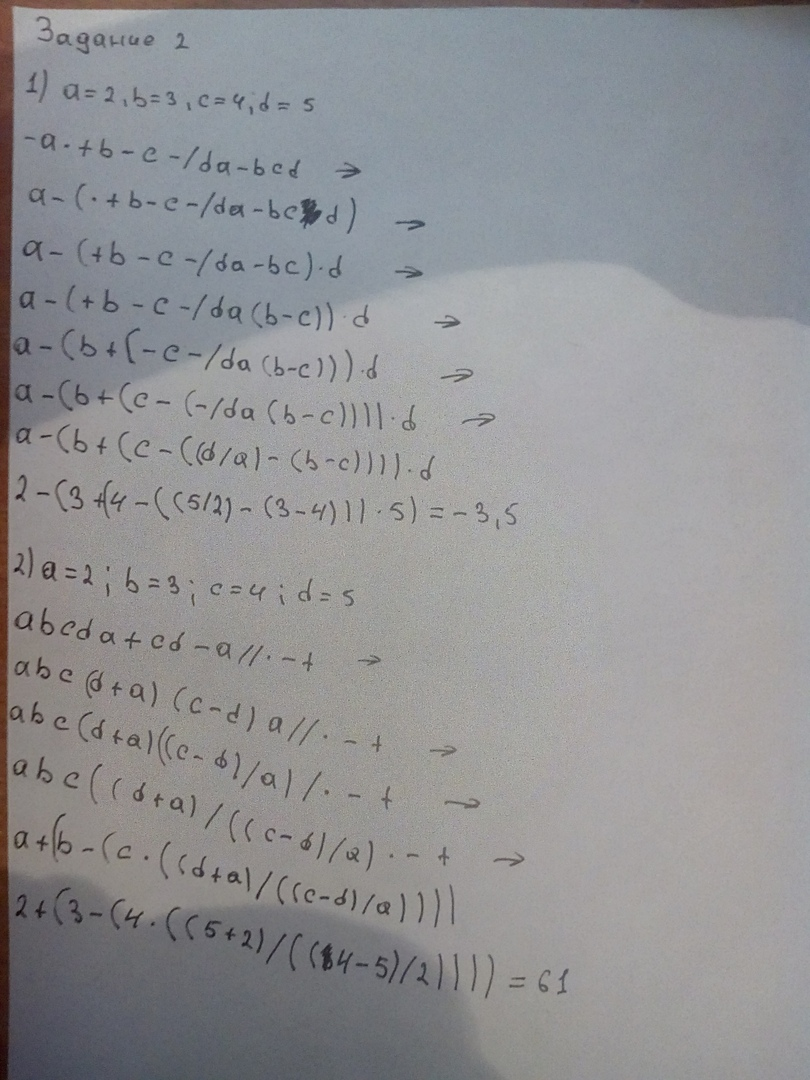 Задание 2
1) a=2, b=3, c=4, d=5
-a·+b-c-/da-bcd →
a-(·+b-c-/da-bcd) →
a-(+b-c-/da-bc)·d →
a-(+b-c-/da(b-c))·d →
a-(b+(-c-/da(b-c)))·d →
a-(b+(c-(-/da(b-c))))·d →
a-(b+(c-((d/a)-(b-c))))·d
2-(3+(4-((5/2)-(3-4)))·5)=-3,5
2) a=2; b=3; c=4; d=5
abcda+cd-a//·-+ →
abc(d+a)(c-d)a//·-+ →
abc(d+a)((c-d)/a)/·-+ →
abc((d+a)/((c-d)/a)·-+ →
a+(b-(c·((d+a)/((c-d)/a))))
2+(3-(4·((5+2)/((4-5)/2))))=61